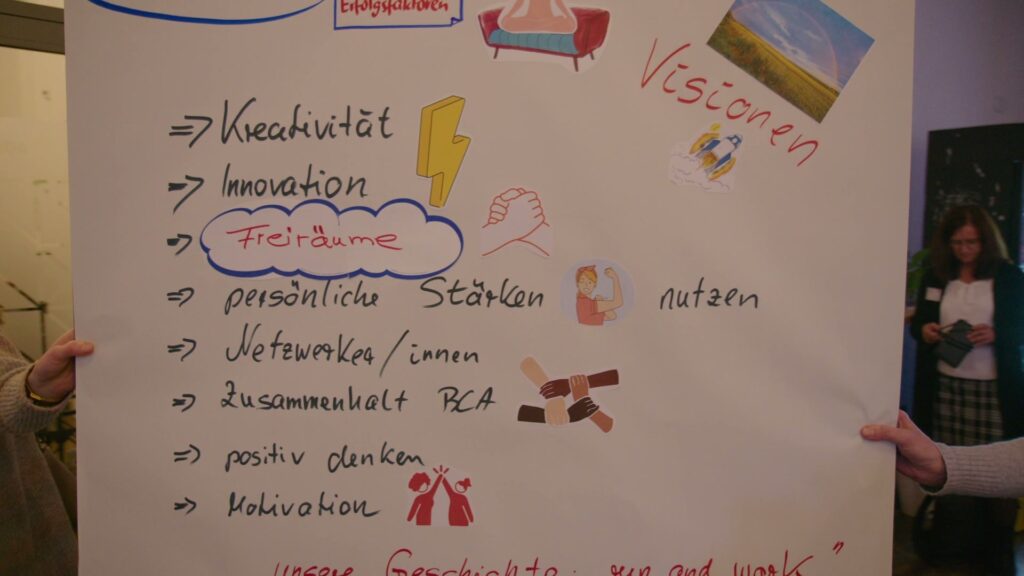 Erfolgsfaktoren
Visionen
=> Kreativität
=> Innovation
=> Freiräume
=> persönliche Stärken nutzen
=> Netzwerker/innen
=> Zusammenhalt BCA
=> positiv denken
=> Motivation
unsere Geschichte: run and work"